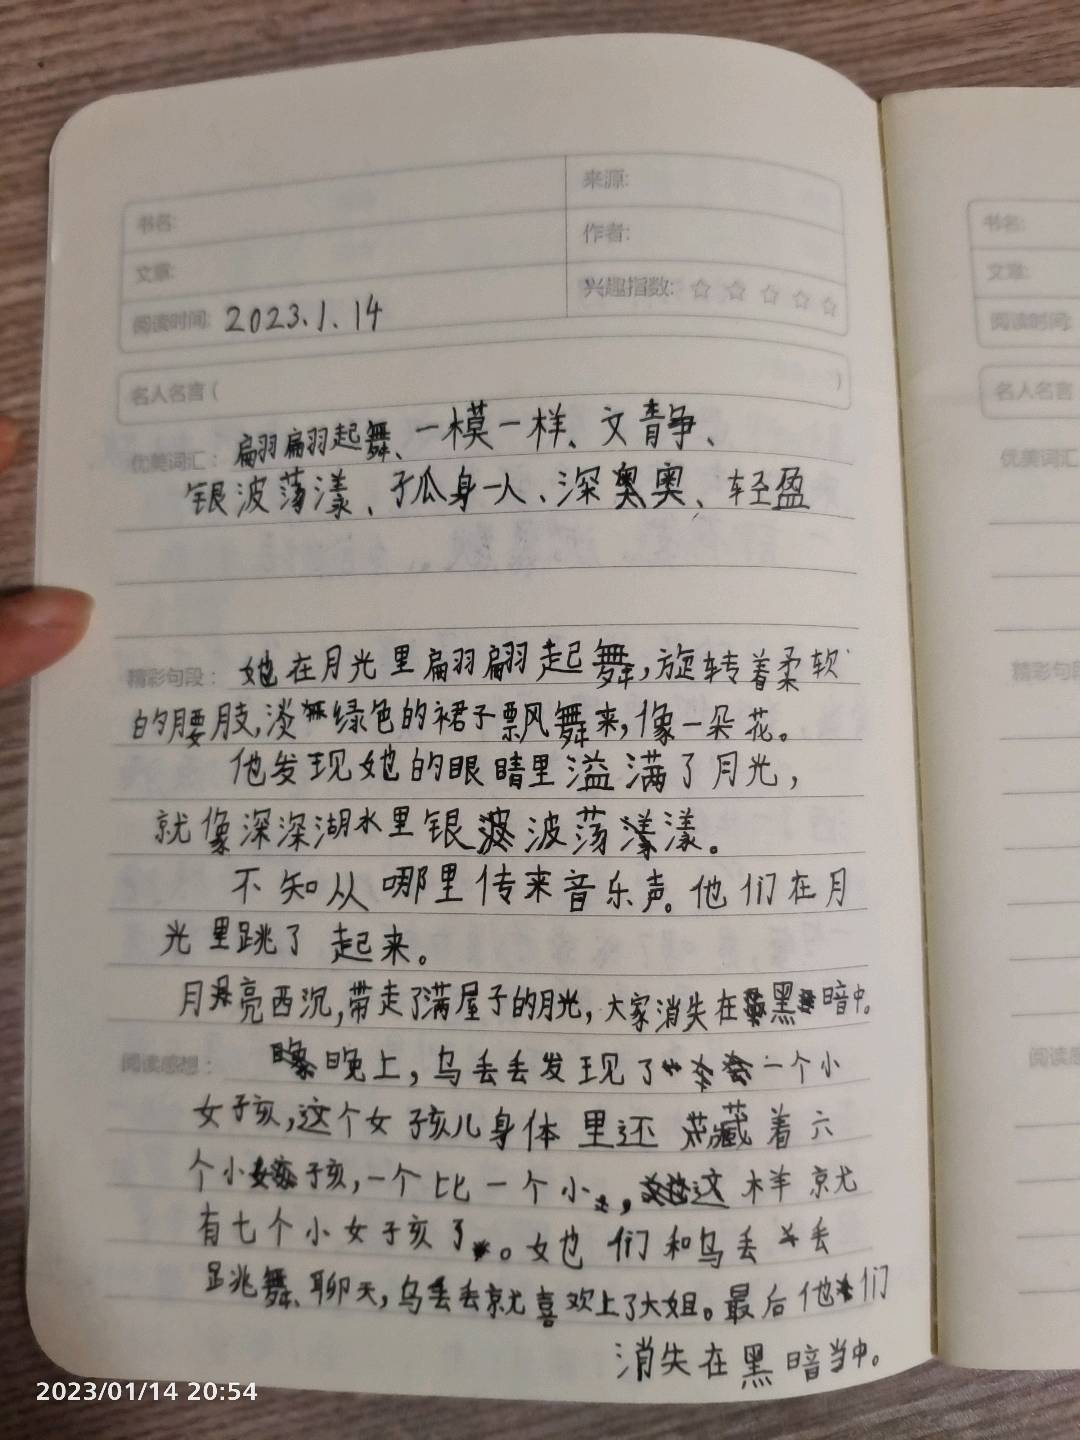 来源:
书名:
作者:
文章:
兴趣指数: ☆ ☆ ☆ ☆ ☆
阅读时间: 2023.1.14
名人名言 ( )
优美词汇: 翩翩起舞、一模一样、文静、
银波荡漾、孤身一人、深奥、轻盈
精彩句段: 她在月光里翩翩起舞,旋转着柔软
的腰肢,淡绿色的裙子飘舞来,像一朵花。
他发现她的眼睛里溢满了月光,
就像深深湖水里银波荡漾。
不知从哪里传来音乐声。他们在月
光里跳了起来。
月亮西沉,带走了满屋子的月光,大家消失在黑暗中。
阅读感想: 晚上,乌丢丢发现了一个小
女孩,这个女孩儿身体里还藏着六
个小孩,一个比一个小,这样就
有七个小女孩了。她们和乌丢丢
跳舞、聊天,乌丢丢就喜欢上了大姐。最后他们
消失在黑暗当中。
书名:
文章:
阅读时间:
名人名言
优美词汇
精彩句段
阅读感
2023/01/14 20:54